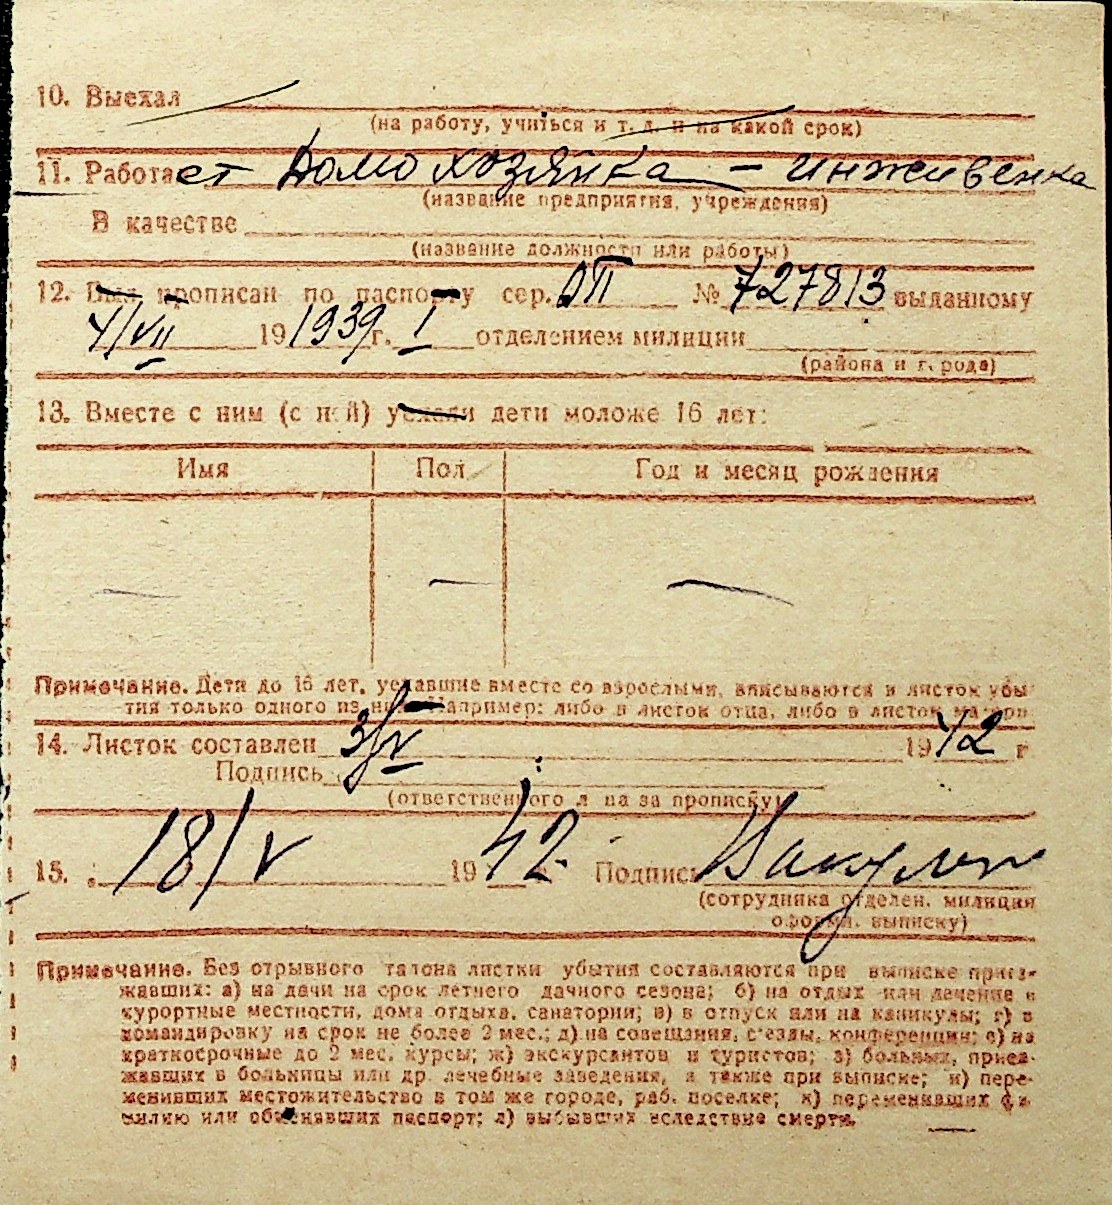 10. Выехал
(на работу, учиться и т. д. и на какой срок)
11. Работает Домохозяйка –
(название предприятия, учреждения)
В качестве
(название должности или работы)
12. Был прописан по паспорту сер. № 727813 выданному
/VII 19 1939 г. I отделением милиции
(района и города)
13. Вместе с ним (с ней) уехали дети моложе 16 лет:
Имя Пол Год и месяц рождения
— — —
Примечание. Дети до 16 лет, уехавшие вместе со взрослыми, вписываются в листок убы-
тия только одного из них. Например: либо в листок отца, либо в листок матери
14. Листок составлен 3/V 1942 г
Подпись
(ответственного лица за прописку)
15. 18/V 1942. Подпись
(сотрудника отделен. милиции
оформ. выписку)
Примечание. Без отрывного талона листки убытия составляются при выписке приез-
жавших: а) на дачи на срок летнего дачного сезона; б) на отдых или лечение в
курортные местности, дома отдыха, санатории; в) в отпуск или на каникулы; г) в
командировку на срок не более 2 мес.; д) на совещания, с'езды, конференции; е) на
краткосрочные до 2 мес. курсы; ж) экскурсантов и туристов; з) больных, приез-
жавших в больницы или др. лечебные заведения, а также при выписке; и) пере-
менивших местожительство в том же городе, раб. поселке; к) переменивших фа-
милию или обменявших паспорт; л) выбывших вследствие смерти.